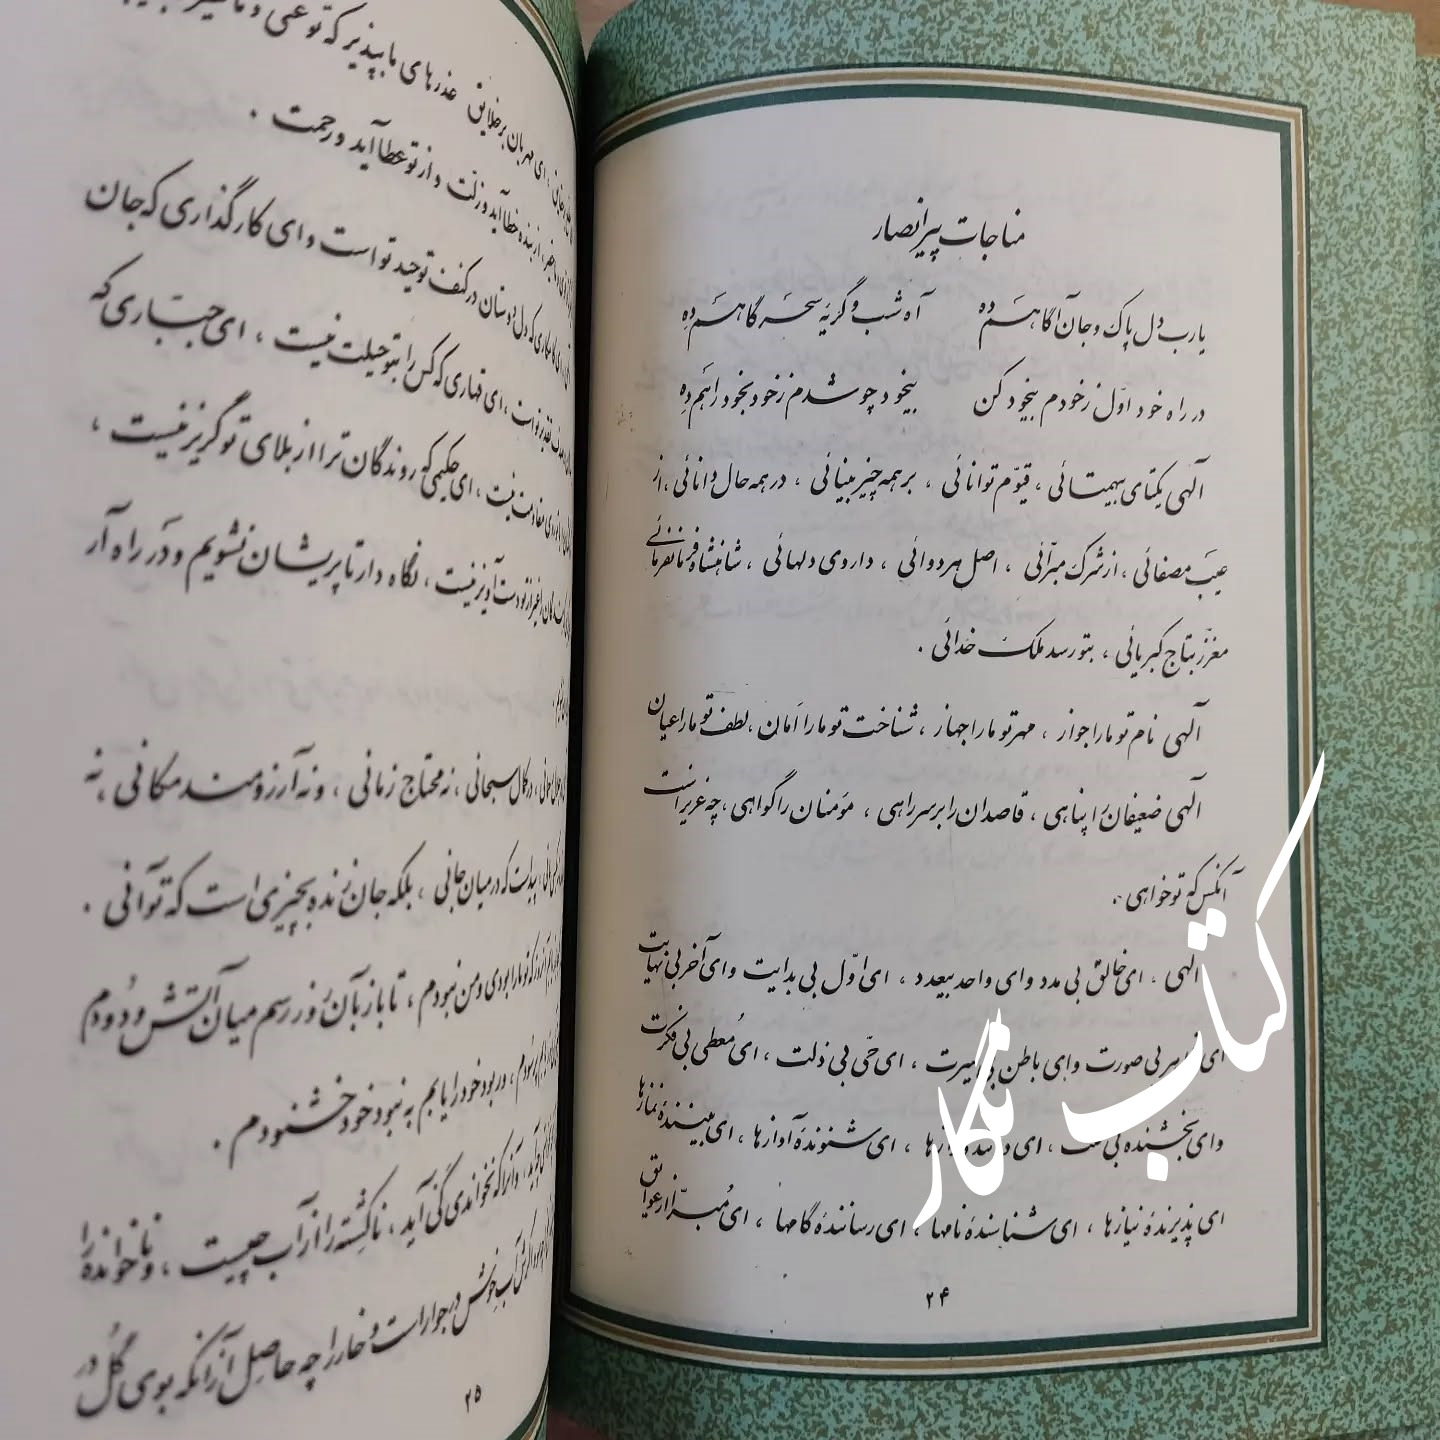 مناجات پیر انصار
یارب دل پاک و جان آگاهم ده    آه شب و گریهٔ سحرگاهم ده
در راه خود اول ز خودم بیخود کن    بیخود چو شدم ز خود بخود راهم ده
آلهی یکتای بیهمتائی ، قیّوم توانائی ، بر همه چیز بینائی ، در همه حال دانائی ، از
عیب مصفائی ، از شرک مبرّائی ، اصل هر دوائی ، داروی دلهائی ، شاهنشاه فرمانفرمائی
معزز بتاج کبریائی ، بتو رسد ملک خدائی .
آلهی نام تو ما را جواز ، مهر تو ما را جهاز ، شناخت تو ما را امان ، لطف تو ما را عیان
آلهی ضعیفان را پناهی ، قاصدان را بر سر راهی ، مؤمنان را گواهی ، چه عزیز است
آنکس که تو خواهی .
الهی ، ای خالق بی مدد و ای واحد بیعدد ، ای اوّل بی بدایت و ای آخر بی نهایت
ای بی صورت و ای باطن بی ، ای حَی بی ذلت ، ای مُعطی بی فکرت
و ای بخشنده بی ، ای ، ای شنوندهٔ آوازها ، ای بینندهٔ نمازها
ای پذیرندهٔ نیازها ، ای شناسندهٔ نامها ، ای رسانندهٔ گامها ، ای مُبرّا از عوایق
۲۴
عذرهای ما بپذیر که تو غنی و
ای مهربان بر خلایق
از بنده خطا آید و زلت و از تو عطا آید و رحمت .
که دل دوستان در کنف توحید تو است و ای کارگذاری که جان
تقدیر تو است ، ای قهاری که کس را بتو حیلت نیست ، ای جبّاری که
مقاومت نیست ، ای حکیمی که روندگان ترا از بلای تو گریز نیست ،
غیر از تو دست آویز نیست ، نگاه دار تا پریشان نشویم و در راه آر
در کمال سبحانی ، نه محتاج زمانی ، و نه آرزومند مکانی ، نه
پیداست که در میان جانی ، بلکه جان زنده بچیزی است که تو آنی .
که تو ما را بودی و من نبودم ، تا باز بآن روز رسم میان آتش و دودم
در بود خود را یابم به نبود خود خشنودم .
و آنرا که نخواندی کی آید ، ناکِشته را از آب چیست ، و ناخوانده را
آب خوش در جوار است و خار را چه حاصل از آنکه بوی گُل در
۲۵
کتاب نگار